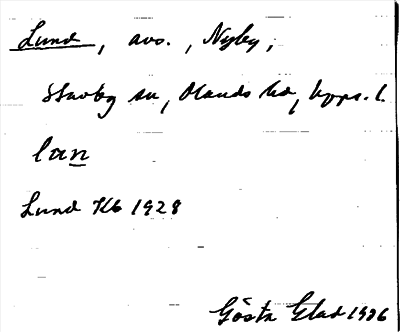 Lund, avs., Nyby,
Stavby sn, Olands hd, Upps. l.
lan
Lund Kb 1928
Gösta Glad 1986